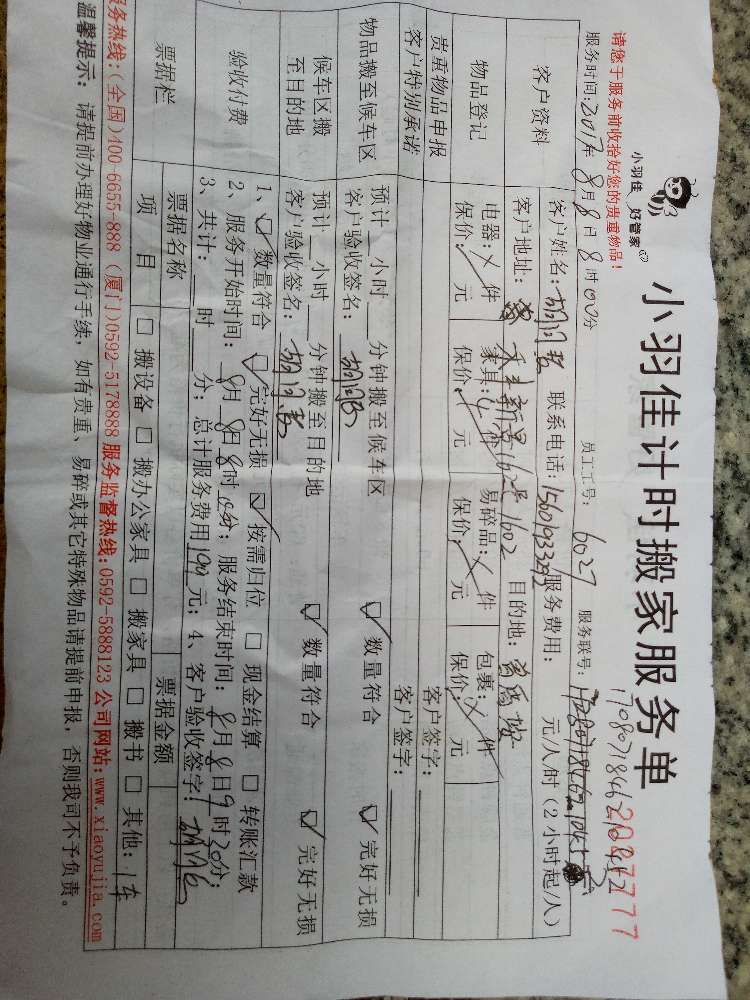 小羽佳 好管家
小羽佳计时搬家服务单
2007777
请您于服务前收拾好您的贵重物品！
服务时间：2017年8月8日8时00分 员工工号：6027 服务联号：
客户资料
客户姓名： 联系电话： 服务费用： 元/人时（2小时起/人）
客户地址： 162号1602 目的地：
物品登记
电器： 件 家具： 件 易碎品： 件 包裹： 件
保价： 元 保价： 元 保价： 元 保价： 元
贵重物品申报 客户签字：
客户特别承诺 客户签字：
物品搬至候车区
预计 小时 分钟搬至候车区 ☑ 数量符合 ☑ 完好无损
客户验收签名：
候车区搬
至目的地
预计 小时 分钟搬至目的地 ☑ 数量符合 ☑ 完好无损
客户验收签名：
验收付费
1、☑ 数量符合 ☑ 完好无损 ☑ 按需归位 □ 现金结算 □ 转账汇款
2、服务开始时间：8月8日8时00分；服务结束时间：8月8日9时20分；
3、共计： 时 分；总计服务费用190元；4、客户验收签字：
票据栏
票据名称 票据金额
项 目 □ 搬设备 □ 搬办公家具 □ 搬家具 □ 搬书 □ 其他：1车
服务热线：(全国)400-6655-888 (厦门)0592-5178888 服务监督热线：0592-5888123 公司网站：www.xiaoyujia.com
温馨提示：请提前办理好物业通行手续，如有贵重、易碎或其它特殊物品请提前申报，否则我司不予负责。